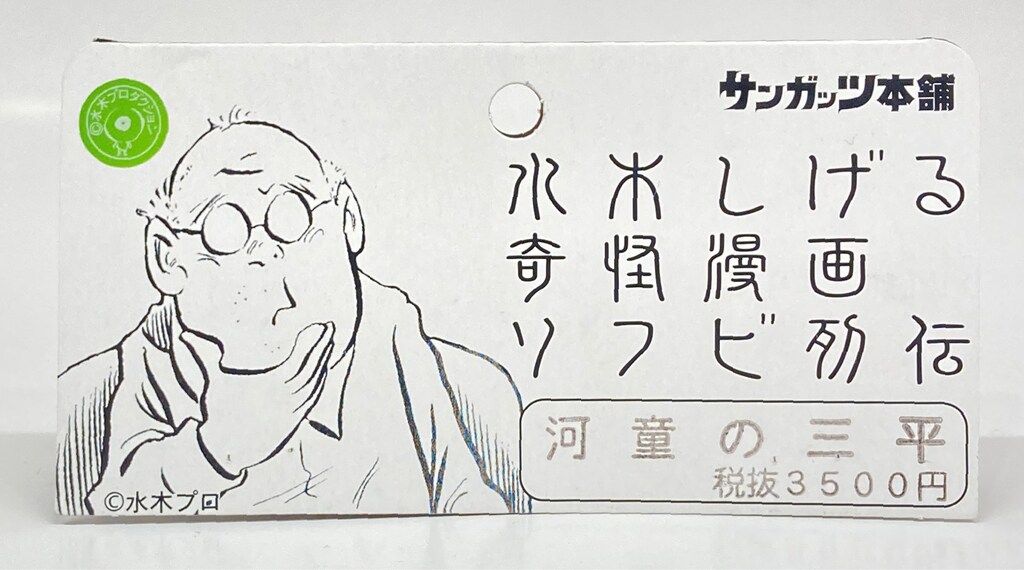 ©水木プロダクション
サンガッツ本舗
水木しげる
奇怪漫画
ソフビ列伝
河童の三平
税抜3500円
©水木プロ